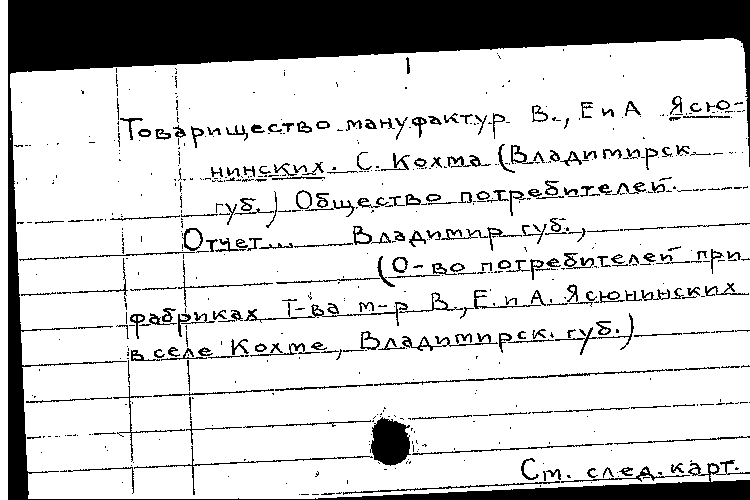 Товарищество мануфактур В., Е и А Ясю-
нинских. С. Кохма (Владимирск.
губ.) Общество потребителей.
Отчет... Владимир губ.,
(О-во потребителей при
фабриках Т-ва м-р В., Е. и А. Ясюнинских
в селе Кохме, Владимирск. губ.)
См. след. карт.